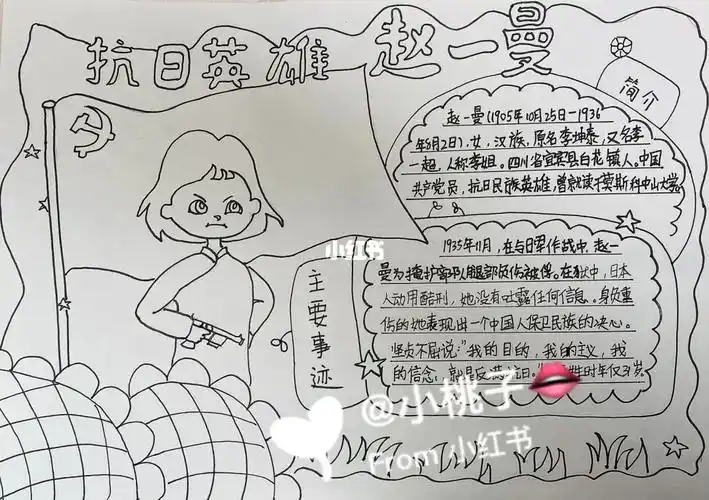 抗日英雄 赵一曼
简介
赵一曼(1905年10月25日-1936
年8月2日),女,汉族,原名李坤泰,又名李
一超,人称李姐。四川省宜宾县白花镇人。中国
共产党员,抗日民族英雄,曾就读于莫斯科中山大学
小红书
主要事迹
1935年11月,在与日军作战中,赵一
曼为掩护部队腿部负伤被俘。在狱中,日本
人动用酷刑,她没有吐露任何信息。身负重
伤的她表现出一个中国人保卫民族的决心。
坚贞不屈说:"我的目的,我的主义,我
的信念,就是反满抗日。"牲时年仅31岁
@小桃子
From 小红书